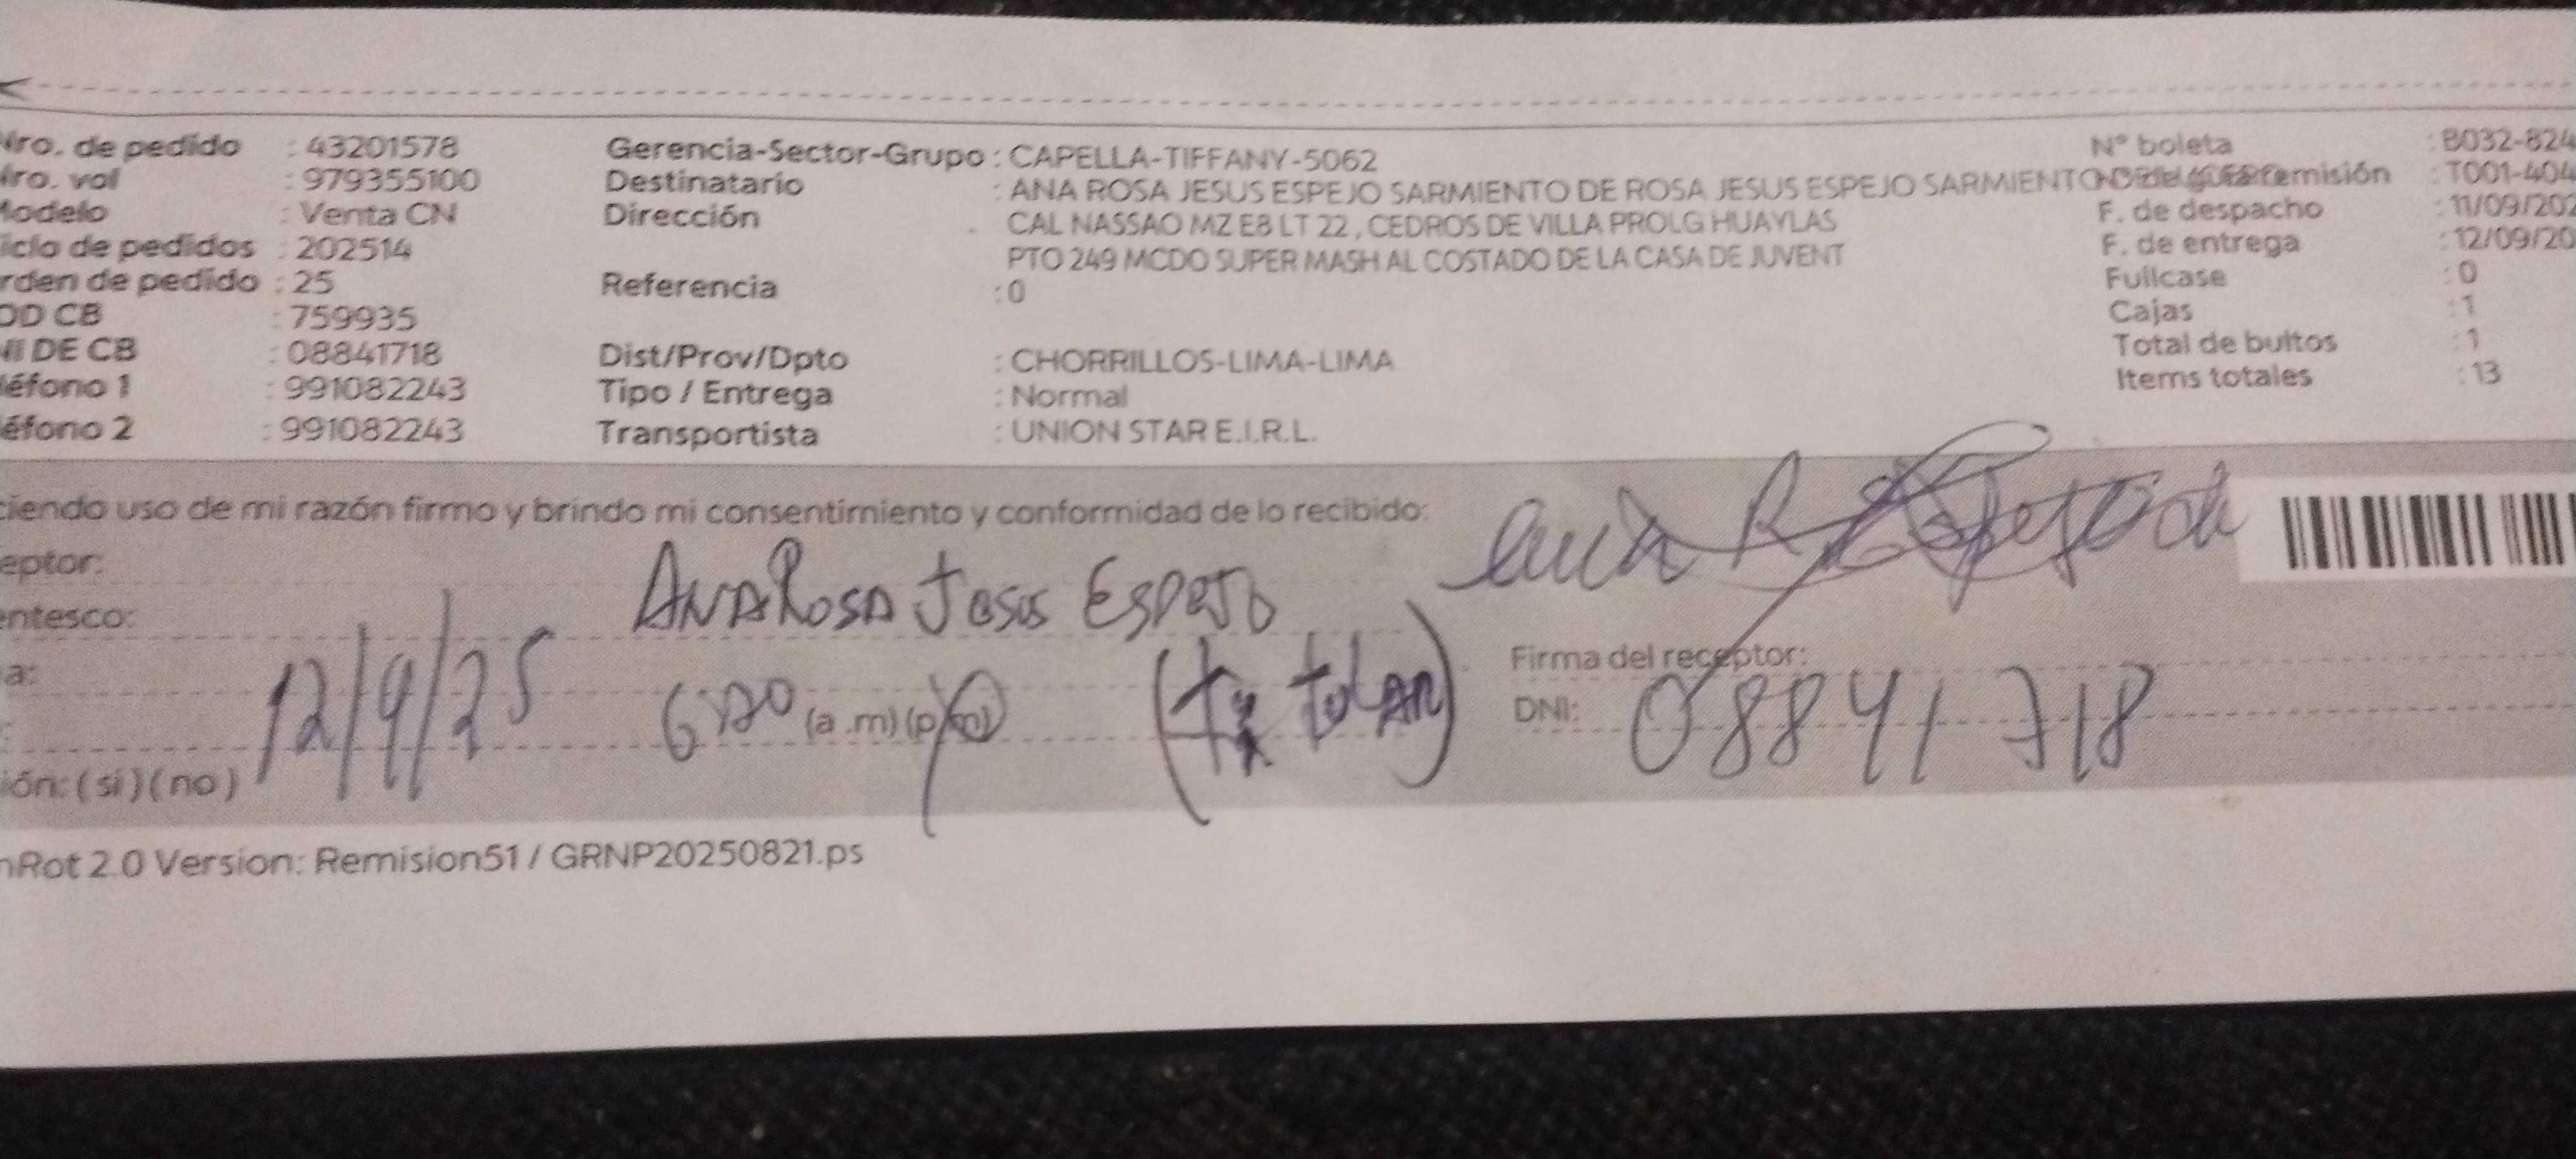 Nro. de pedido : 43201578
Nro. vol : 979355100
Modelo : Venta CN
iclo de pedidos : 202514
rden de pedido : 25
OD CB : 759935
NI DE CB : 08841718
léfono 1 : 991082243
éfono 2 : 991082243
Gerencia-Sector-Grupo : CAPELLA-TIFFANY-5062
Destinatario : ANA ROSA JESUS ESPEJO SARMIENTO DE ROSA JESUS ESPEJO SARMIENTO
Dirección : CAL NASSAO MZ E8 LT 22 , CEDROS DE VILLA PROLG HUAYLAS
PTO 249 MCDO SUPER MASH AL COSTADO DE LA CASA DE JUVENT
Referencia : 0
Dist/Prov/Dpto : CHORRILLOS-LIMA-LIMA
Tipo / Entrega : Normal
Transportista : UNION STAR E.I.R.L.
N° boleta : B032-824
remisión : T001-404
F. de despacho : 11/09/202
F. de entrega : 12/09/20
Fullcase : 0
Cajas : 1
Total de bultos : 1
Items totales : 13
ciendo uso de mi razón firmo y brindo mi consentimiento y conformidad de lo recibido:
eptor: ANA ROSA JESUS ESPEJO
entesco:
a: 12/9/25
(a .m) (p.m)
Firma del receptor:
DNI: 08841718
ión: ( si ) ( no )
nRot 2.0 Version: Remision51 / GRNP20250821.ps